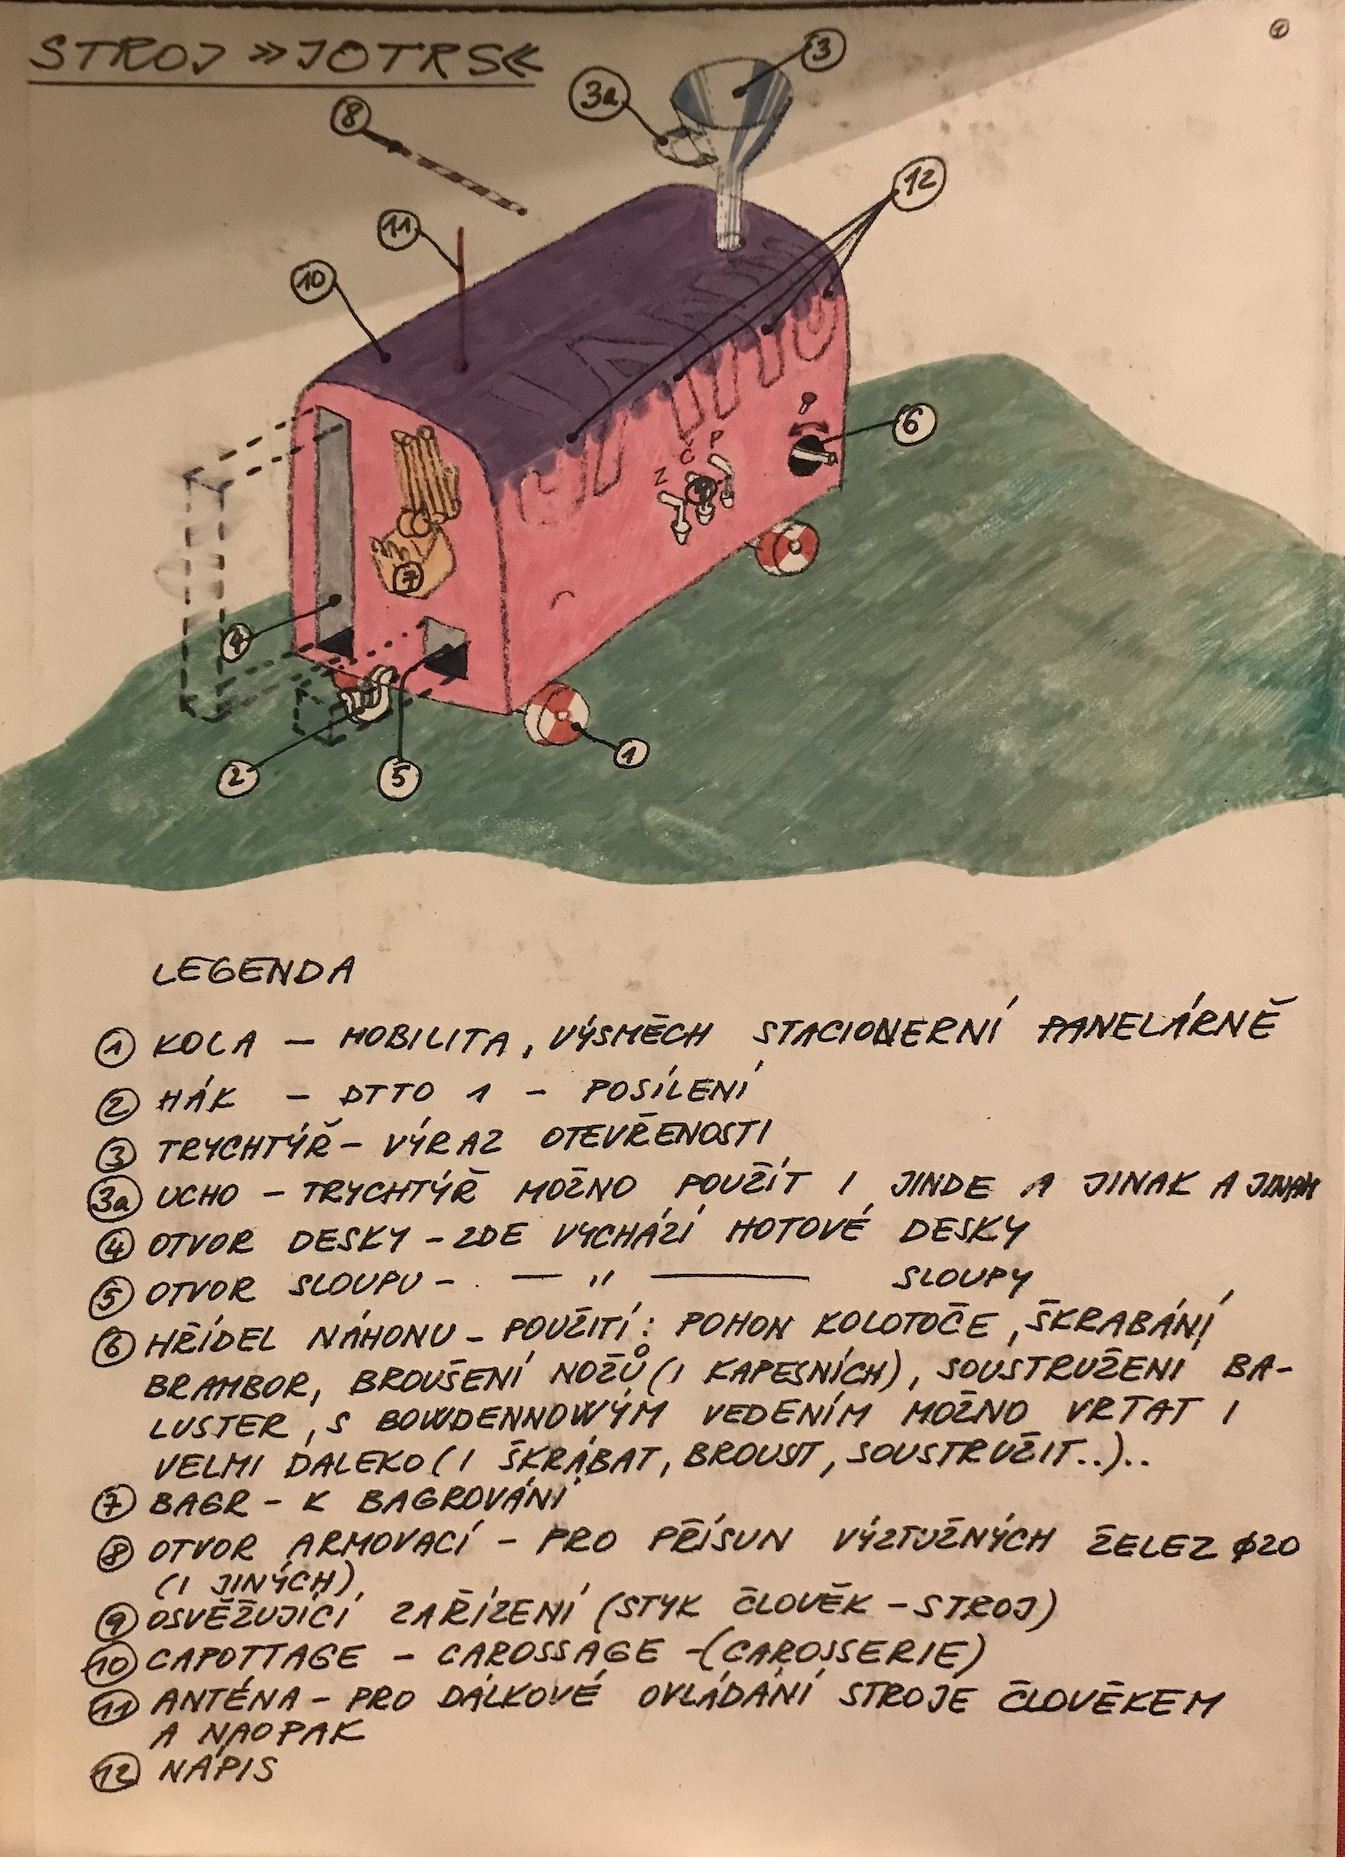 STROJ »JOTRS«
1
3
3a
8
12
11
10
6
Z Č P
9
7
4
2
5
1
LEGENDA
1 KOLA — MOBILITA, VÝSMĚCH STACIONERNÍ PANELÁRNĚ
2 HÁK – DTTO 1 – POSÍLENÍ
3 TRYCHTÝŘ – VÝRAZ OTEVŘENOSTI
3a UCHO – TRYCHTÝŘ MOŽNO POUŽÍT I JINDE A JINAK A JINAM
4 OTVOR DESKY – ZDE VYCHÁZÍ HOTOVÉ DESKY
5 OTVOR SLOUPU – — " — SLOUPY
6 HŘÍDEL NÁHONU – POUŽITÍ: POHON KOLOTOČE, ŠKRABÁNÍ
BRAMBOR, BROUŠENÍ NOŽŮ (I KAPESNÍCH), SOUSTRUŽENI BA-
LUSTER, S BOWDENNOWÝM VEDENÍM MOŽNO VRTAT I
VELMI DALEKO (I ŠKRÁBAT, BROUSIT, SOUSTRUŽIT..)..
7 BAGR – K BAGROVÁNÍ
8 OTVOR ARMOVACÍ – PRO PŘÍSUN VÝZTUŽNÝCH ŽELEZ ϕ20
(I JINÝCH),
9 OSVĚŽUJÍCÍ ZAŘÍZENÍ (STYK ČLOVĚK – STROJ)
10 CAPOTTAGE – CAROSSAGE – (CAROSSERIE)
11 ANTÉNA – PRO DÁLKOVÉ OVLÁDÁNÍ STROJE ČLOVĚKEM
A NAOPAK
12 NÁPIS